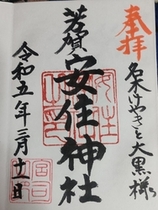 奉拝
名木けやきと大黒様
芳賀
安住神社
令和五年三月十一日